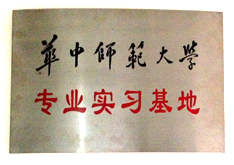 華中师範大学
专业实习基地